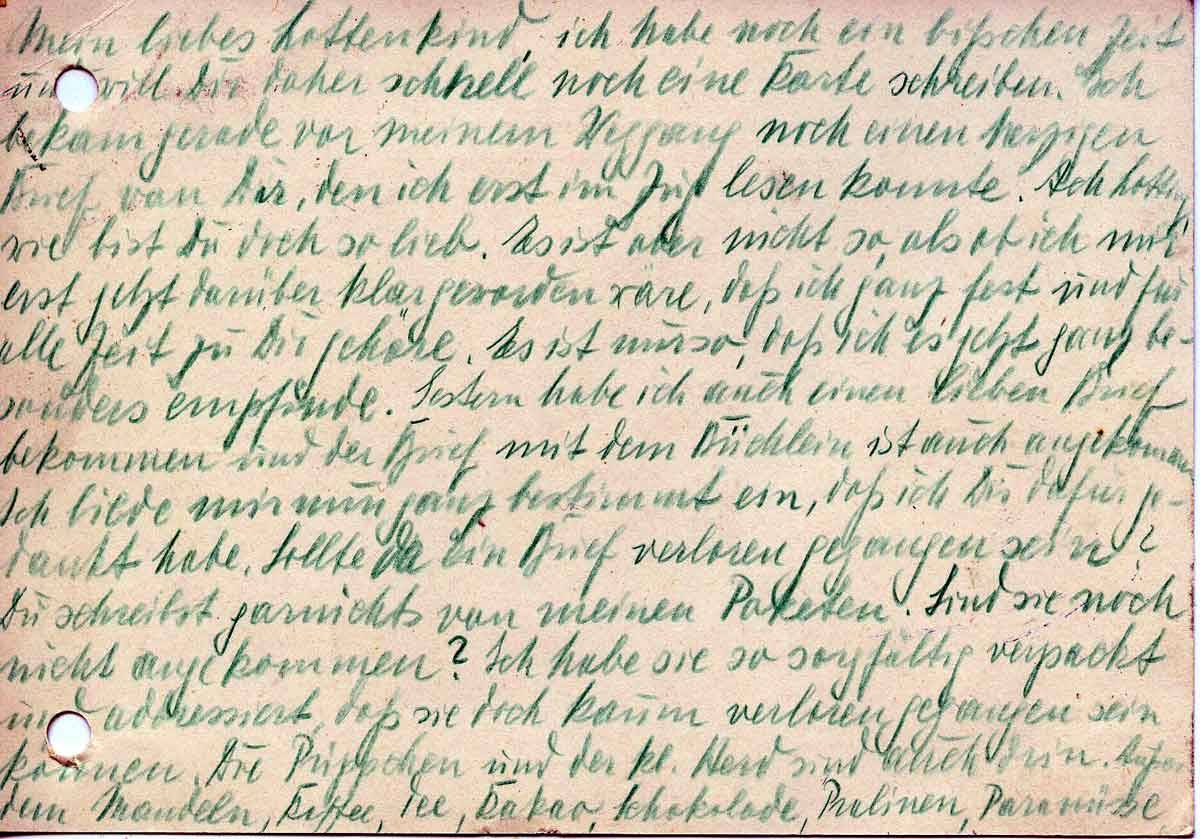 Mein liebes Lottenkind, ich habe noch ein bißchen Zeit
und will Dir daher schnell noch eine Karte schreiben. Ich
bekam gerade vor meinem Weggang noch einen herzigen
Brief von Dir, den ich erst im Zug lesen konnte. Ach Lotte,
wie bist Du doch so lieb. Es ist aber nicht so, als ob ich mir
erst jetzt darüber klar geworden wäre, daß ich ganz fest und für
alle Zeit zu Dir gehöre. Es ist nur so, daß ich es jetzt ganz be-
sonders empfinde. Gestern habe ich auch einen lieben Brief
bekommen und der Brief mit dem Büchlein ist auch angekommen.
Ich bilde mir nun ganz bestimmt ein, daß ich Dir dafür ge-
dankt habe. Sollte da ein Brief verloren gegangen sein?
Du schreibst garnichts von meinen Paketen. Sind sie noch
nicht angekommen? Ich habe sie so sorgfältig verpackt
und adressiert, daß sie doch kaum verloren gegangen sein
können. Die Püppchen und der kl. Herd sind auch drin. Außer
dem Mandeln, Kaffee, Tee, Kakao, Schokolade, Pralinen, Paranüsse